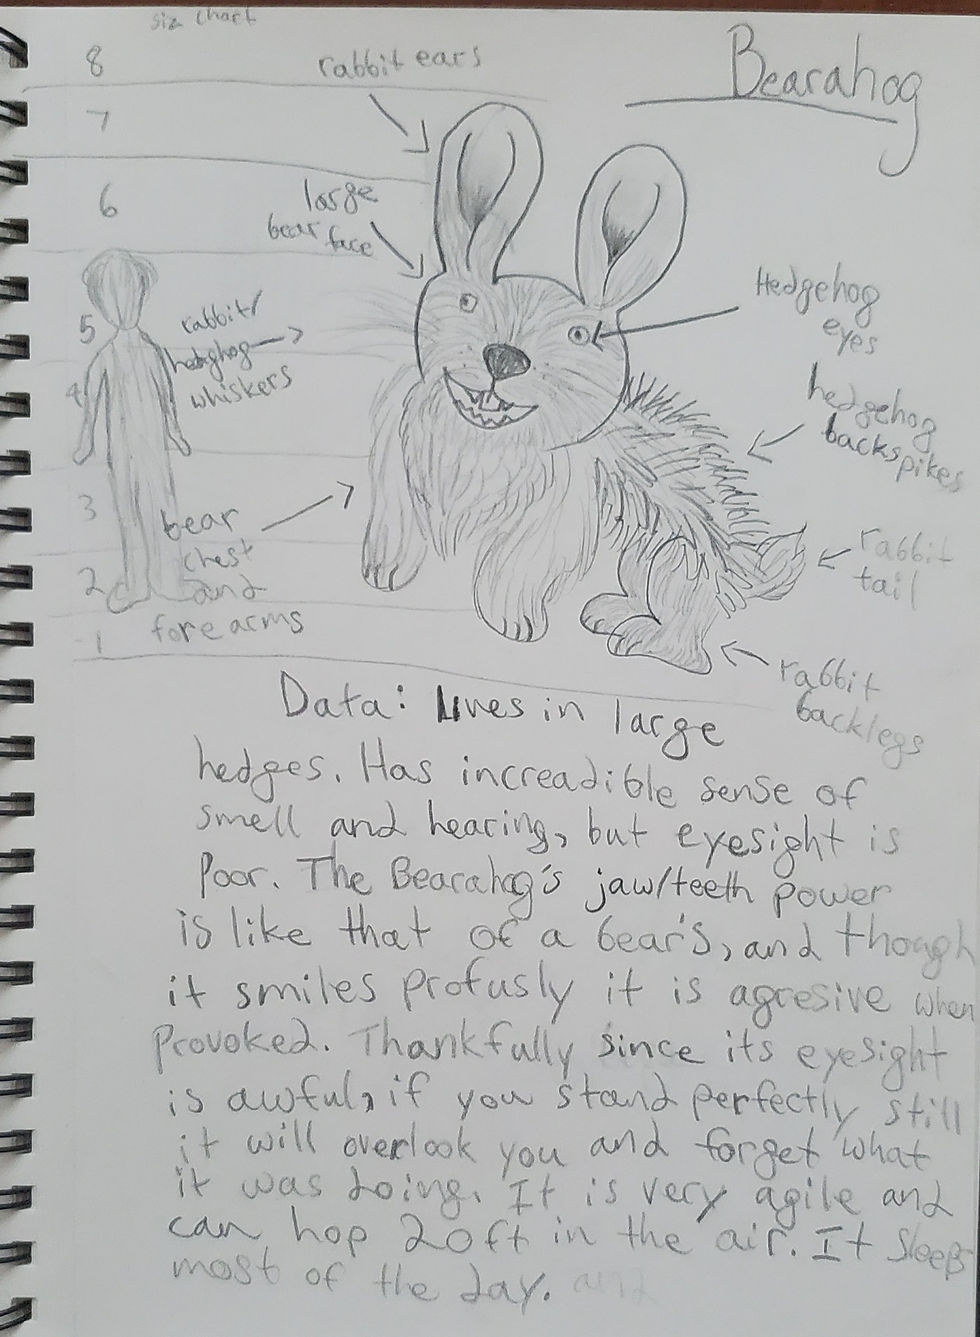 siz chart
Bearahog
8
7
6
5
4
3
2
1
rabbit ears
large
bear face
rabbit/
hedghog
whiskers
Hedgehog
eyes
hedgehog
backspikes
bear
chest
and
forearms
rabbit
tail
rabbit
backlegs
Data: Lives in large
hedges. Has increadible sense of
smell and hearing, but eyesight is
Poor. The Bearahog's jaw/teeth power
is like that of a bear's, and though
it smiles profusly it is agresive when
Provoked. Thankfully since its eyesight
is awful, if you stand perfectly still
it will overlook you and forget what
it was doing. It is very agile and
can hop 20ft in the air. It sleeps
most of the day. and